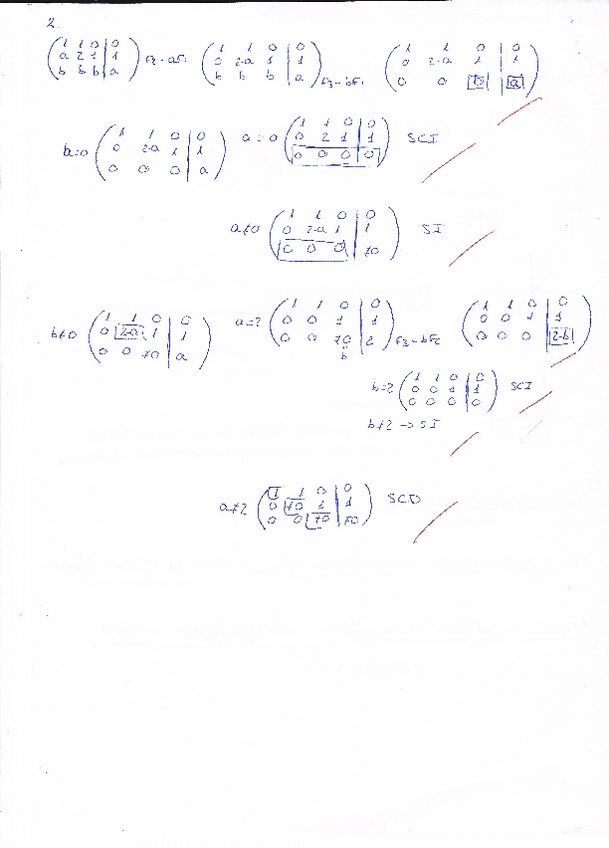 2.
( 1 1 0 | 0 ; a 2 1 | 1 ; b b b | a ) F2-aF1 ( 1 1 0 | 0 ; 0 2-a 1 | 1 ; b b b | a ) F3-bF1 ( 1 1 0 | 0 ; 0 2-a 1 | 1 ; 0 0 b | a )
b=0 ( 1 1 0 | 0 ; 0 2-a 1 | 1 ; 0 0 0 | a ) a=0 ( 1 1 0 | 0 ; 0 2 1 | 1 ; 0 0 0 | 0 ) SCI
a≠0 ( 1 1 0 | 0 ; 0 2-a 1 | 1 ; 0 0 0 | ≠0 ) SI
b≠0 ( 1 1 0 | 0 ; 0 2-a 1 | 1 ; 0 0 ≠0 | a ) a=2 ( 1 1 0 | 0 ; 0 0 1 | 1 ; 0 0 ≠0 | 2 ) F3-bF2 ( 1 1 0 | 0 ; 0 0 1 | 1 ; 0 0 0 | 2-b )
b
b=2 ( 1 1 0 | 0 ; 0 0 1 | 1 ; 0 0 0 | 0 ) SCI
b≠2 → SI
a≠2 ( 1 1 0 | 0 ; 0 ≠0 1 | 1 ; 0 0 ≠0 | ≠0 ) SCD